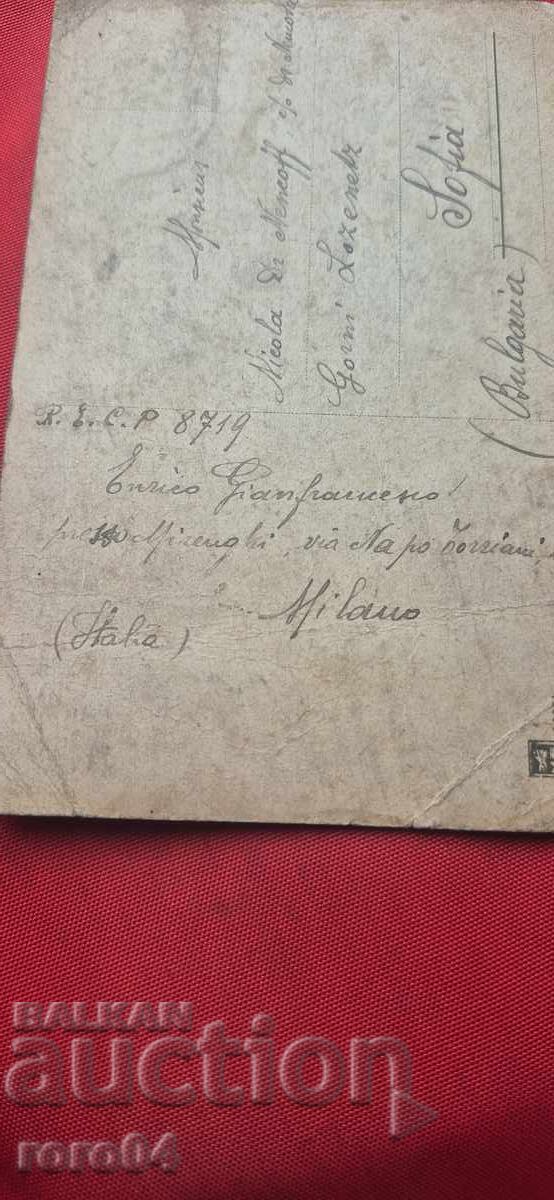 R. E. C. P 8719
Enrico Gianfrancesco
presso Mirenghi, via Napo Torriani,
Milano
(Italia)
Monsieur
Nicola Dr Nencoff
Gorni Lozenetz
Sofia
(Bulgaria)
BALKAN
auction
roro04